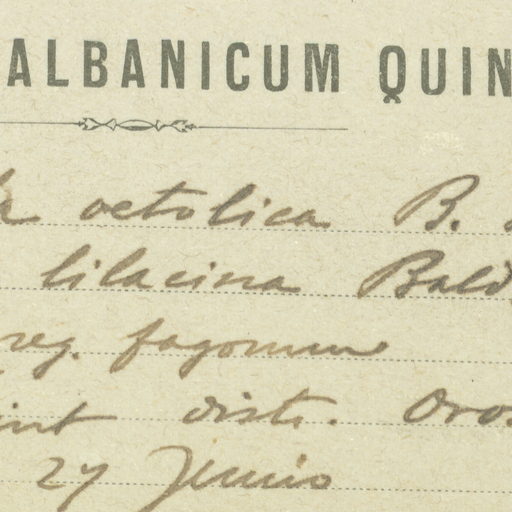 ALBANICUM QUIN
aetolica B.
lilacina Bald
reg. fagorum
int distr. Oros
27 Junio